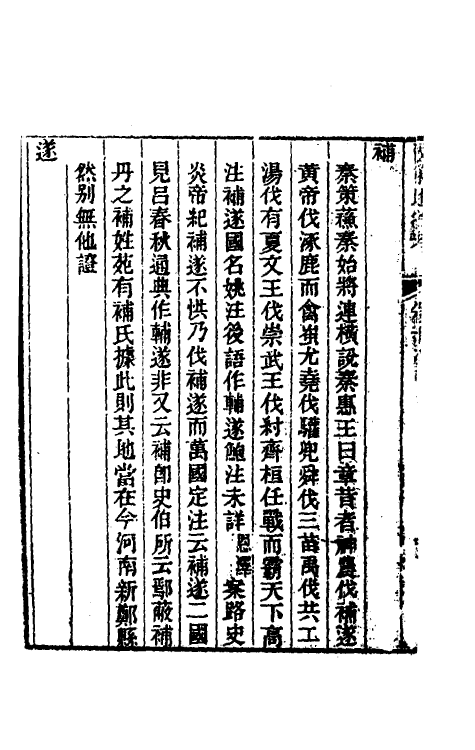 補
秦策蘇秦始將連橫說秦惠王曰章昔者神農伐補遂
黃帝伐涿鹿而禽蚩尤堯伐驩兜舜伐三苗禹伐共工
湯伐有夏文王伐崇武王伐紂齊桓任戰而霸天下高
注補遂國名姚注後語作輔遂鮑注未詳恩澤案路史
炎帝紀補遂不恭乃伐補遂而萬國定注云補遂二國
見呂春秋通典作輔遂非又云補卽史伯所云鄢蔽補
丹之補姓苑有補氏據此則其地當在今河南新鄭縣
然别無他證
遂